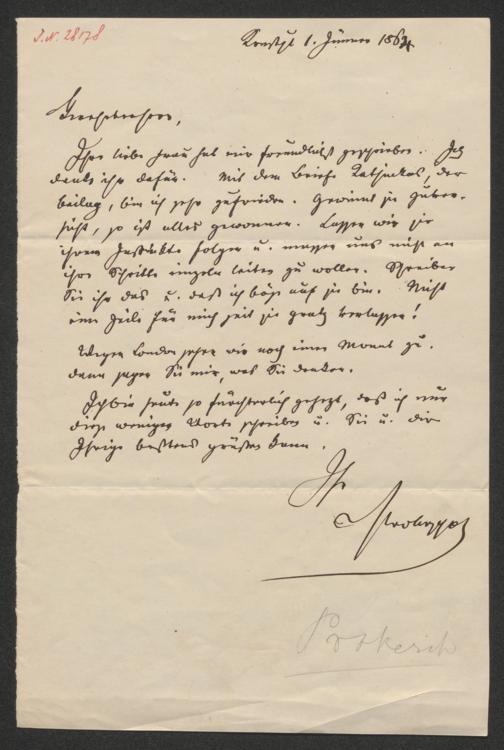 I.N. 28078
1. Jänner 1864
Ihre liebe Frau hat mir freundlichst geschrieben. Ich
danke ihr dafür. Mit dem Briefe Kathinkas, der
beilag, bin ich sehr zufrieden. Gewinnt sie
so ist alles gewonnen. Lassen wir sie
ihrem Instinkte folgen u. massen uns nicht an
ihre Schritte einzeln leiten zu wollen. Schreiben
Sie ihr das u. daß ich böse auf sie bin. Nicht
eine Zeile für mich seit sie Gratz verlassen!
Wegen London sehen wir noch einen Monat zu.
dann sagen Sie mir, was Sie denken.
Ich bin heute so fürchterlich gehetzt, daß ich nur
diese wenigen Worte schreiben u. Sie u. die
Ihrige bestens grüßen kann.
Ihr
Prokesch